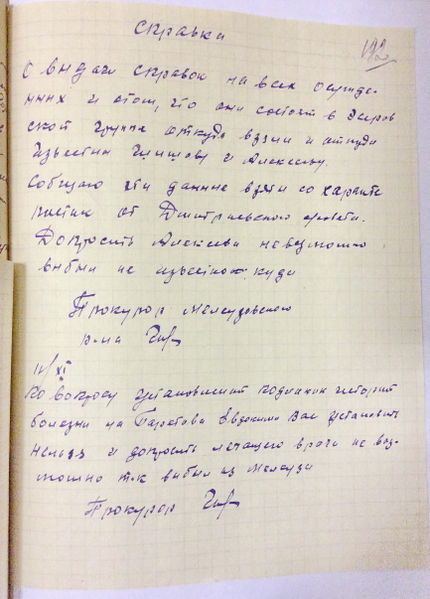 справки
192
О выдачи справок на всех осужде-
нных и о том, что они состоят в Эсеров
ской группе откуда взяли и откуда
известны и Алексееву.
Собщаю эти данные взяты со характе
ристик от Дмитриевского
Допросить Алексеева невозможно
выбыл не известно куда
Прокурор Мелеузовского
р-на
11/XI
По вопросу установления подлинник истории
болезни на Евдокима Вас установить
нельзя и допросить лечащего врача не воз-
можно т.к выбыл из Мелеуза
Прокурор